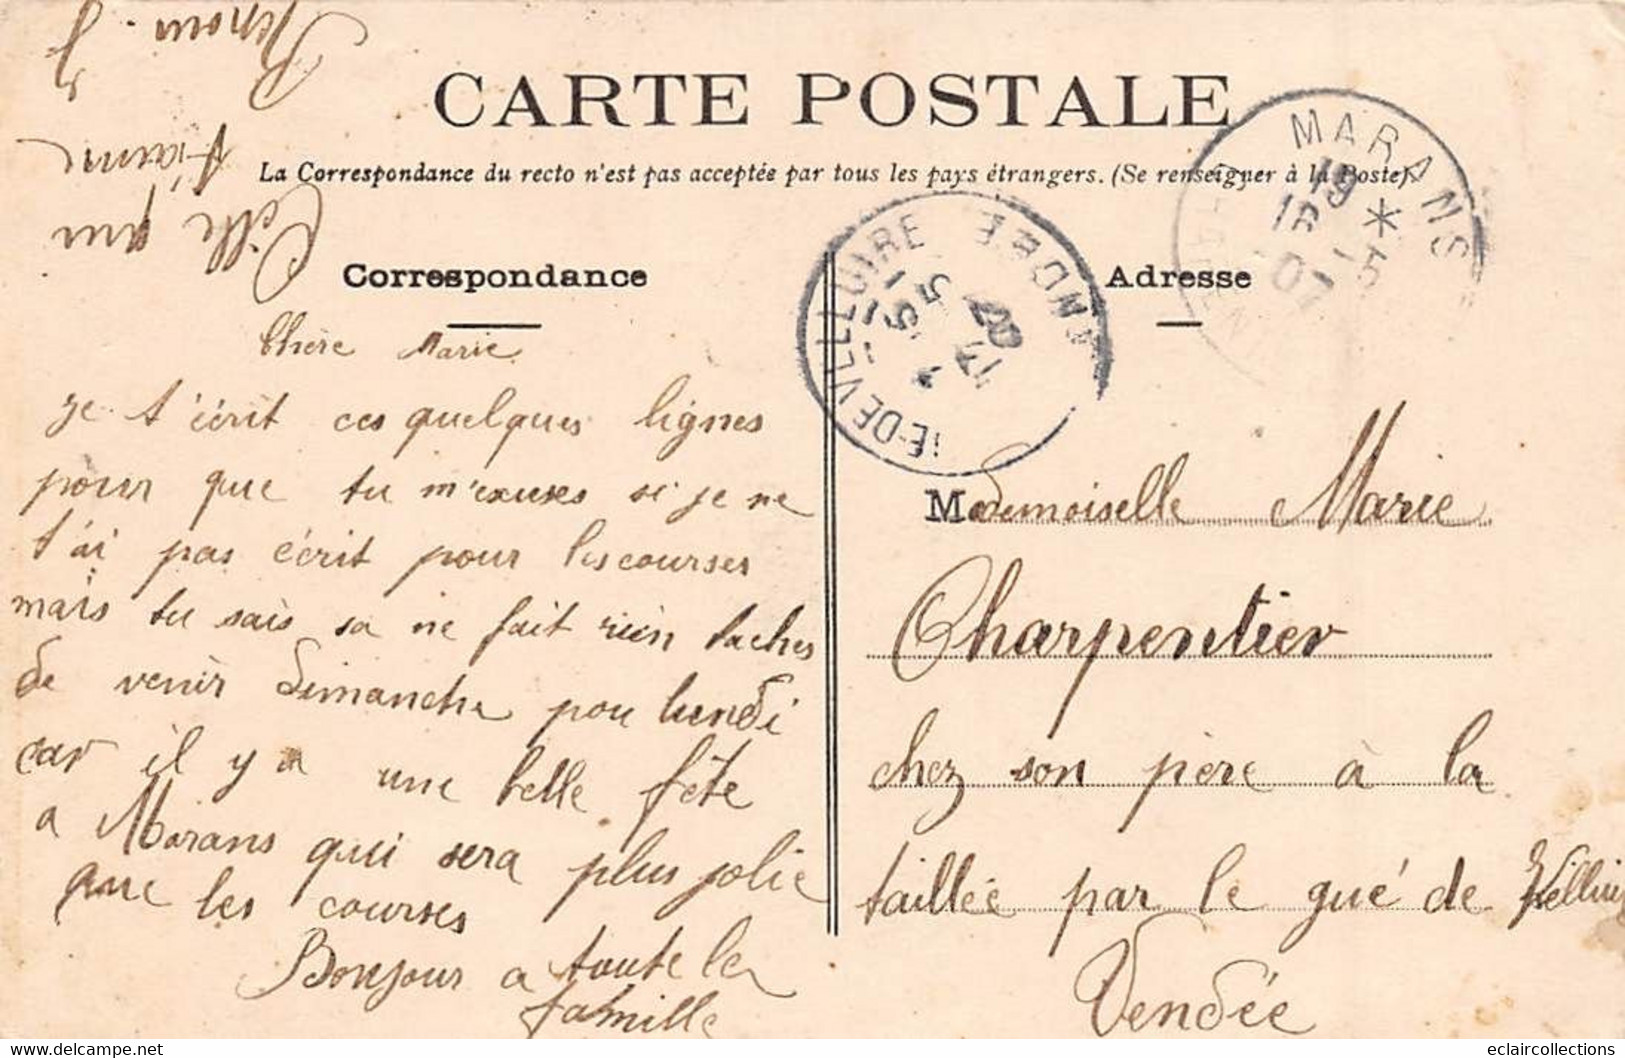 CARTE POSTALE
La Correspondance du recto n'est pas acceptée par tous les pays étrangers. (Se renseigner à la Poste).
Correspondance
Adresse
MARANS
19
16 * 5
07
VENDÉE
Chère Marie
je t'écrit ces quelques lignes
pour que tu m'exuses si je ne
t'ai pas écrit pour les courses
mais tu sais sa ne fait rien taches
de venir dimanche pou lundi
car il y a une belle fête
a Marans qui sera plus jolie
que les courses
Bonjour a toute la
famille
Celle qui
t'aime
Mademoiselle Marie
Charpentier
chez son père à la
taillée par le gué de
Vendée
eclaircollections